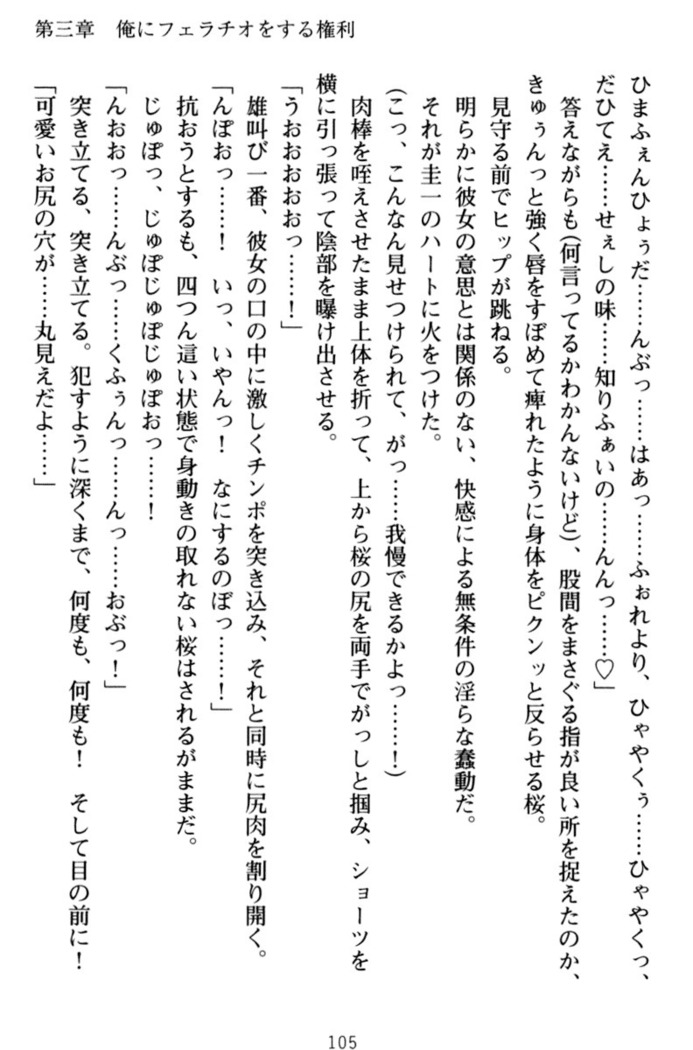 第三章　俺にフェラチオをする権利
ひまふぇんひょぅだ……んぶっ……はあっ……ふぉれより、ひゃやくぅ……ひゃやくっ、
だひてえ……せぇしの味……知りふぁいの……んんっ……♡」
答えながらも(何言ってるかわかんないけど)、股間をまさぐる指が良い所を捉えたのか、
きゅぅんっと強く唇をすぼめて痺れたように身体をピクンッと反らせる桜。
見守る前でヒップが跳ねる。
明らかに彼女の意思とは関係のない、快感による無条件の淫らな蠢動だ。
それが圭一のハートに火をつけた。
(こっ、こんなん見せつけられて、がっ……我慢できるかよっ……！)
肉棒を咥えさせたまま上体を折って、上から桜の尻を両手でがっしと掴み、ショーツを
横に引っ張って陰部を曝け出させる。
「うおおおおおっ……！」
雄叫び一番、彼女の口の中に激しくチンポを突き込み、それと同時に尻肉を割り開く。
「んぽおっ……！　いっ、いやんっ！　なにするのぼっ……！」
抗おうとするも、四つん這い状態で身動きの取れない桜はされるがままだ。
じゅぽっ、じゅぽじゅぽじゅぽおっ……！
「んおおっ……んぶっ……くふぅんっ……んっ……おぶっ！」
突き立てる、突き立てる。犯すように深くまで、何度も、何度も！　そして目の前に！
「可愛いお尻の穴が……丸見えだよ……」
105